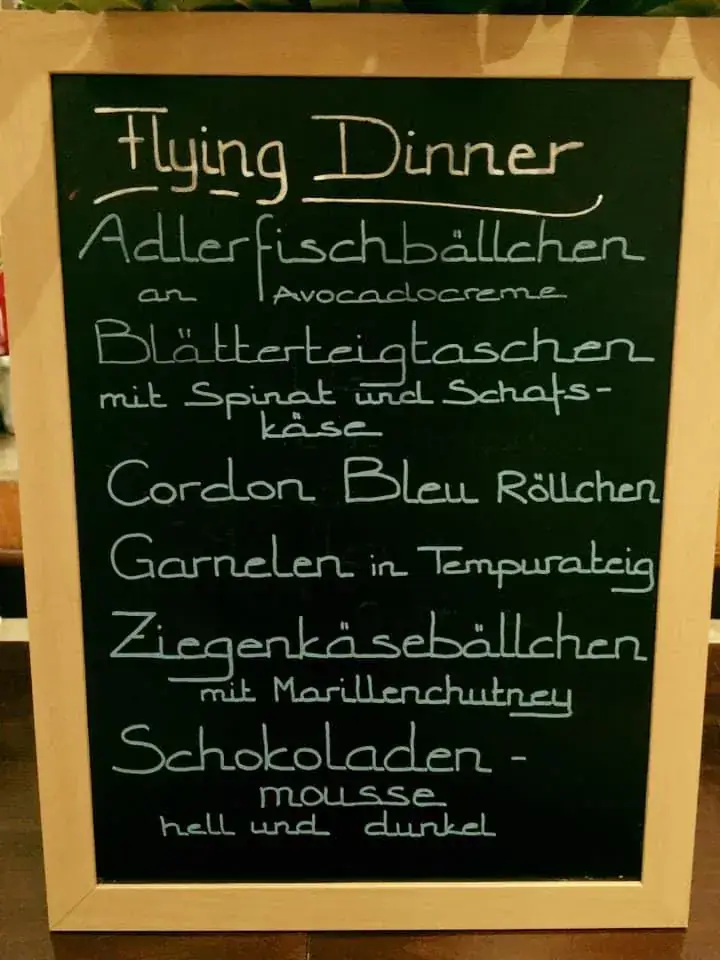 Flying Dinner
Adlerfischbällchen
an Avocadocreme
Blätterteigtaschen
mit Spinat und Schafs-
käse
Cordon Bleu Röllchen
Garnelen in Tempurateig
Ziegenkäsebällchen
mit Marillenchutney
Schokoladen-
mousse
hell und dunkel